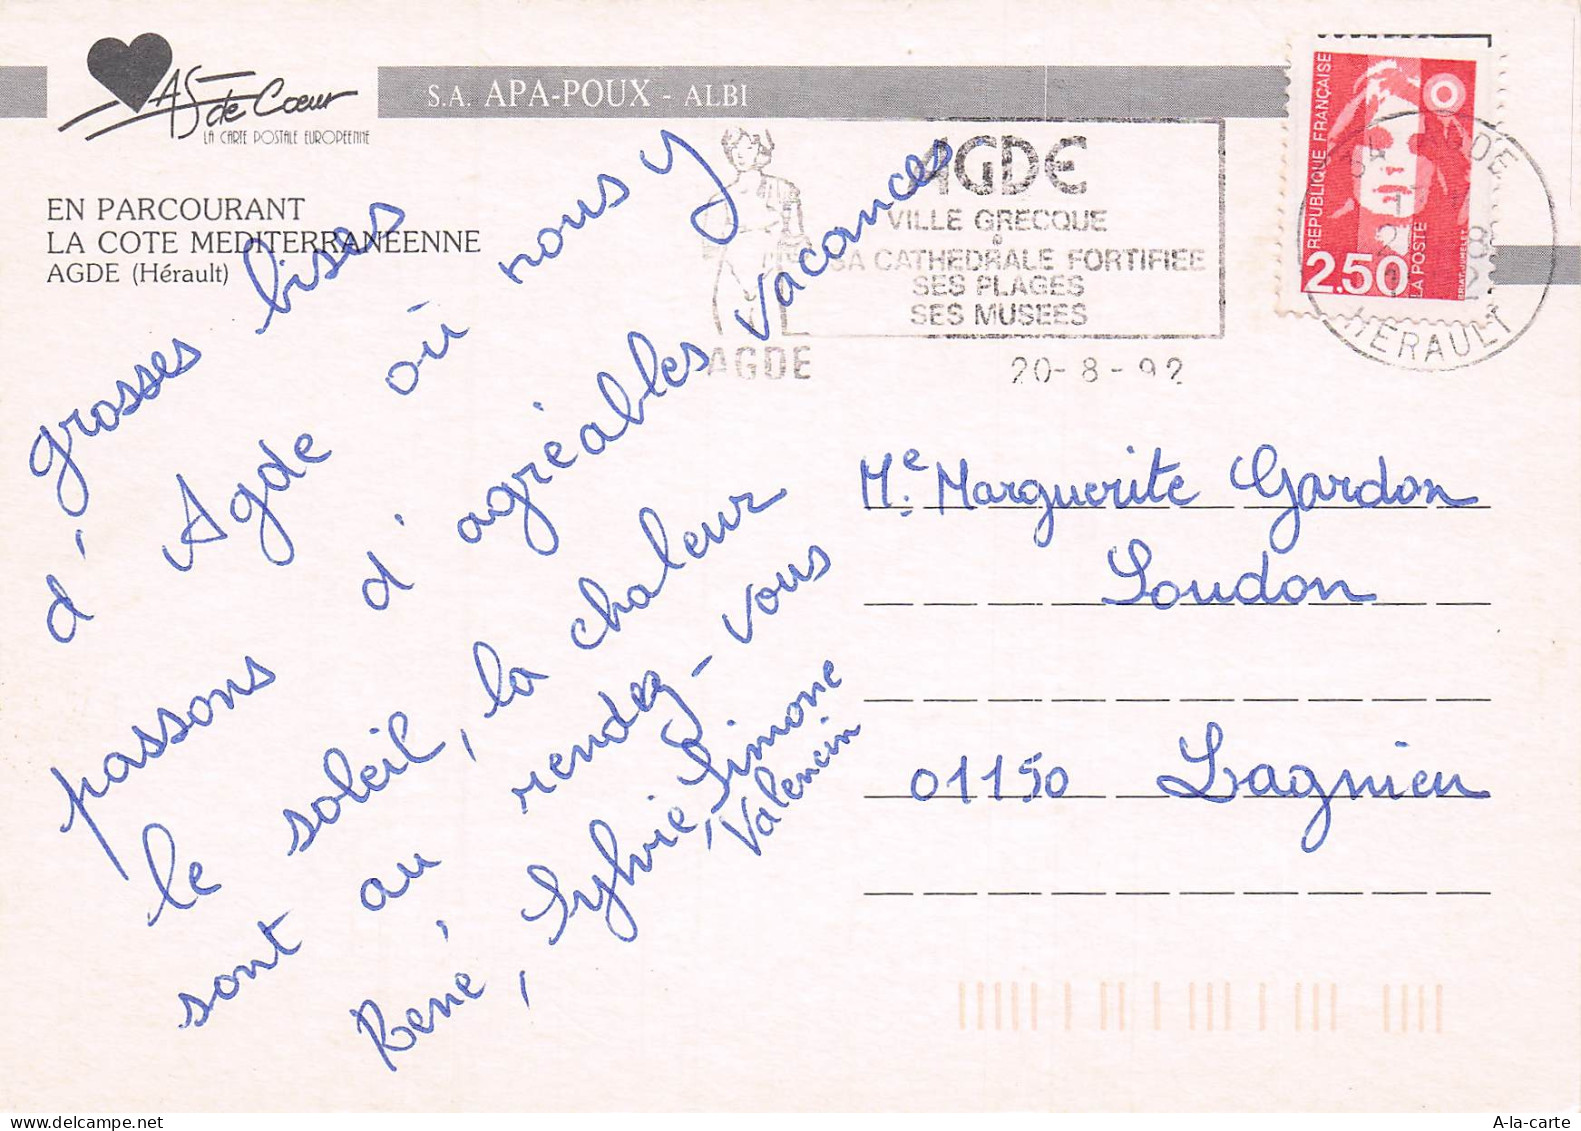 AS de Cœur
LA CARTE POSTALE EUROPEENNE
S.A. APA-POUX - ALBI
EN PARCOURANT
LA COTE MEDITERRANEENNE
AGDE (Hérault)
grosses bises
d'Agde où nous y
passons d'agréables vacances
le soleil, la chaleur
sont au rendez-vous
René, Sylvie, Simone
Valencin
AGDE
VILLE GRECQUE
SA CATHEDRALE FORTIFIEE
SES PLAGES
SES MUSEES
AGDE
20-8-92
REPUBLIQUE FRANÇAISE
2.50
LA POSTE
34 AGDE
HERAULT
Me. Marguerite Gardon
Loudon
01150 Lagnieu
A-la-carte